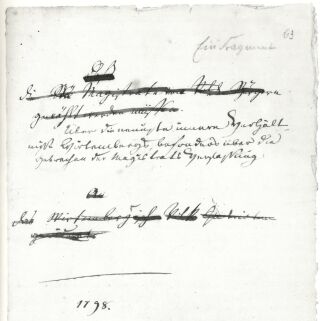 Ein Fragment
Daß
die Magistrate von den Bürgern
gewählt werden müssen
Über die neueste innere Verhält-
nisse Wirtembergs, besonders über die
Gebrechen der Magistratsverfassung.
An
das Wirtembergische Volk
1798.